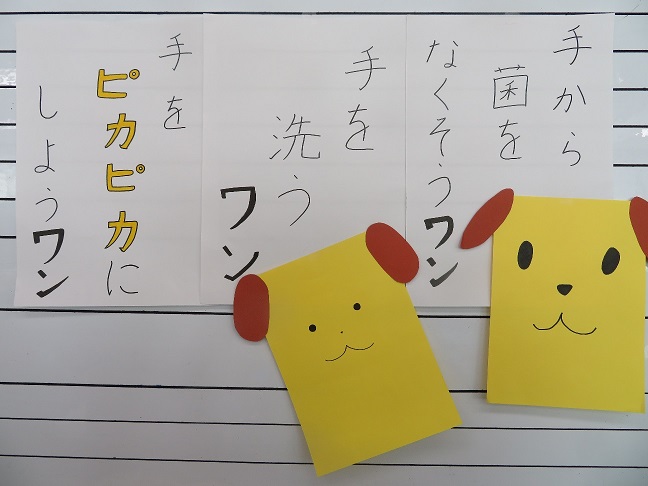 手から
菌を
なくそうワン
手を
洗う
ワン
手を
ピカピカに
しようワン